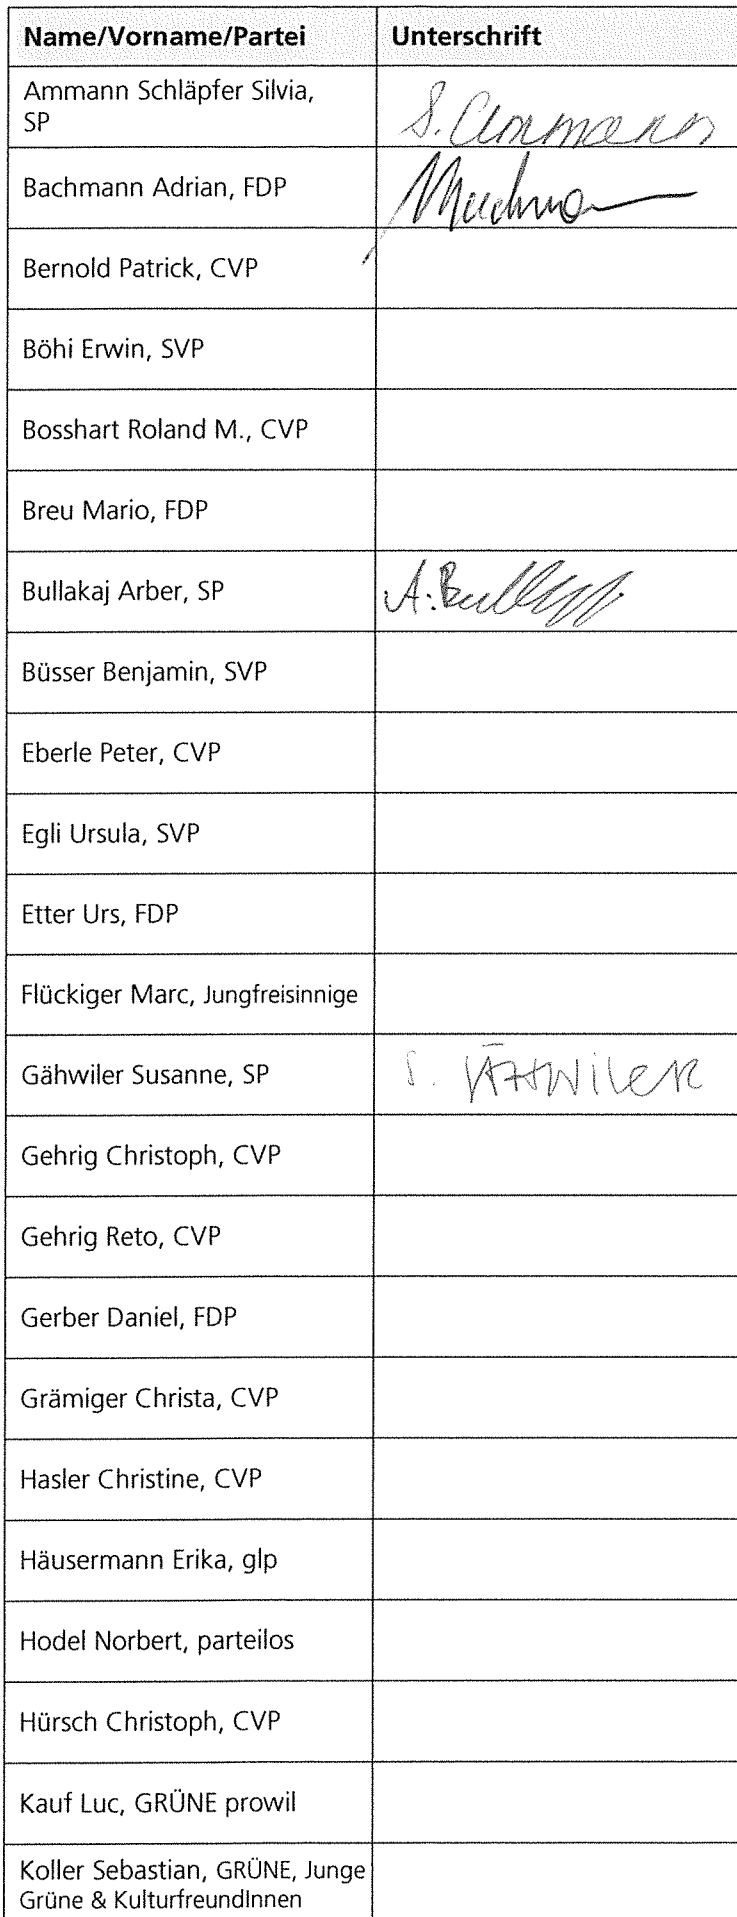 Name/Vorname/Partei Unterschrift
Ammann Schläpfer Silvia,
SP
S. Ammann
Bachmann Adrian, FDP
Bernold Patrick, CVP
Böhi Erwin, SVP
Bosshart Roland M., CVP
Breu Mario, FDP
Bullakaj Arber, SP
Büsser Benjamin, SVP
Eberle Peter, CVP
Egli Ursula, SVP
Etter Urs, FDP
Flückiger Marc, Jungfreisinnige
Gähwiler Susanne, SP S. Gähwiler
Gehrig Christoph, CVP
Gehrig Reto, CVP
Gerber Daniel, FDP
Grämiger Christa, CVP
Hasler Christine, CVP
Häusermann Erika, glp
Hodel Norbert, parteilos
Hürsch Christoph, CVP
Kauf Luc, GRÜNE prowil
Koller Sebastian, GRÜNE, Junge
Grüne & KulturfreundInnen